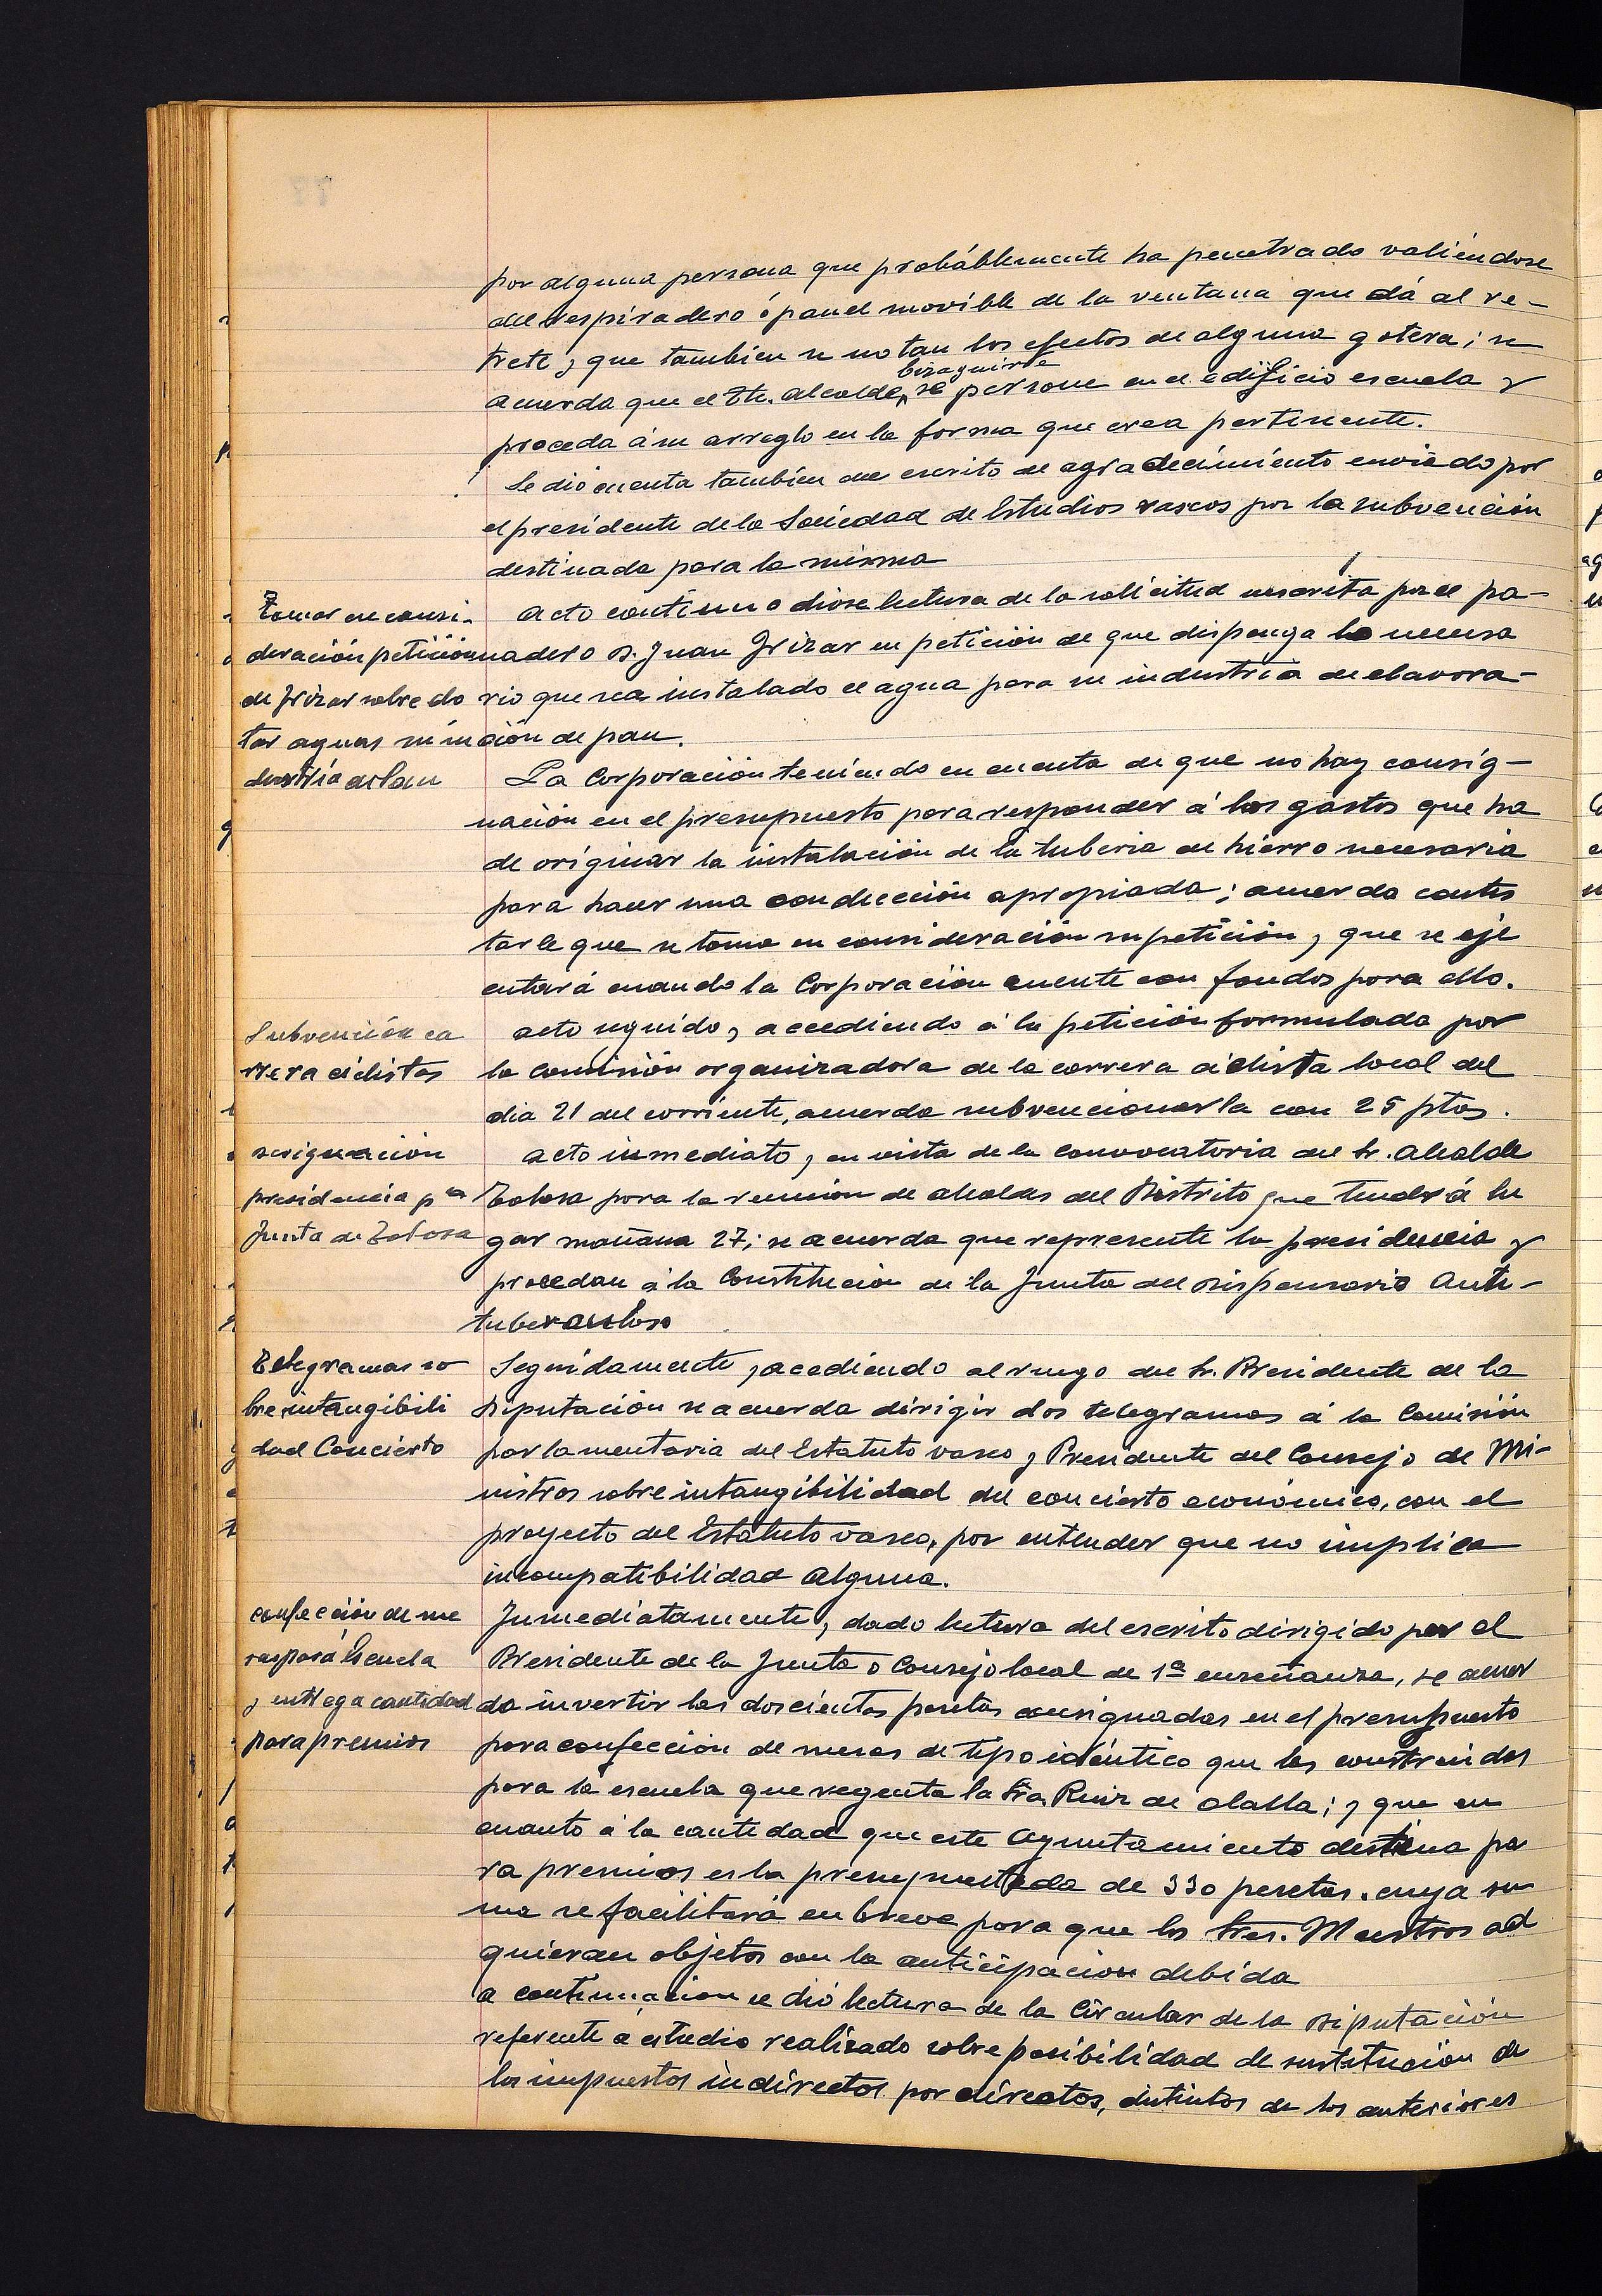 por alguna persona que probáblemente ha penetrado valiéndose
del respiradero ó panel movible de la ventana que dá al re-
trete, que tambien se notan los efectos de alguna gotera; se
acuerda que el Tte. Alcalde, Eizaguirre se persone en el edificio escuela y
proceda á su arreglo en la forma que crea pertinente.
Se dió cuenta tambien del escrito de agradecimiento enviado por
el presidente de la Sociedad de Estudios vascos por la subvención
destinada para la misma
Tomar en consi-
deración petición
de Irizar sobre do
tar aguas su in
dustria de Pan
Acto continuo diose lectura de la solicitud suscrita por el pa-
nadero D. Juan Irizar en petición de que disponga lo necesa
rio que sea instalado el agua para su industria de elavora-
ción de pan.
La Corporación teniendo en cuenta de que no hay consig-
nación en el presupuesto para responder á los gastos que ha
de originar la instalación de la tuberia de hierro necesaria
para hacer una conducción apropiada; acuerda contes
tarle que se toma en consideración su petición, que se eje
cutará cuando la Corporación cuente con fondos para ello.
Subvención ca
rrera ciclistas
Acto seguido, accediendo á la petición formulada por
la Comisión organizadora de la carrera ciclista local del
dia 21 del corriente, acuerda subvencionarla con 25 ptas.
designación
presidencia pª
Junta de Tolosa
Acto inmediato, en vista de la convocatoria del Sr. Alcalde
Tolosa para la reunión de alcaldes del Distrito que tendrá lu
gar mañana 27; se acuerda que represente la presidencia y
procedan á la Constitución de la Junta del Dispensario Anti-
tuberculoso
Telegramas so
bre intangibili
dad Concierto
Seguidamente, acediendo al ruego del Sr. Presidente de la
Diputación se acuerda dirigir dos telegramas á la Comisión
parlamentaria del Estatuto vasco y Presidente del Consejo de Mi-
nistros sobre intangibilidad del concierto económico, con el
proyecto del Estatuto vasco, por entender que no implica
incompatibilidad alguna.
confección de me
sas para Escuela
y entrega cantidad
para premios
Inmediatamente, dado lectura del escrito dirigido por el
Presidente de la Junta o Consejo local de 1ª enseñanza, se acuer
da invertir las doscientas pesetas consignadas en el presupuesto
para confección de mesas de tipo idéntico que las construidas
para la escuela que regenta la Sra. Ruiz de Olalla; y que en
cuanto á la cantidad que este Ayuntamiento destina pa
ra premios es la presupuestada de 330 pesetas. cuya su
ma se facilitará en breve para que los Sres. Maestros ad
quieran objetos con la anticipación debida
A continuación se dió lectura de la Circular de la Diputación
referente á estudio realizado sobre posibilidad de sustitución de
los impuestos indirectos por directos, distintos de los anteriores